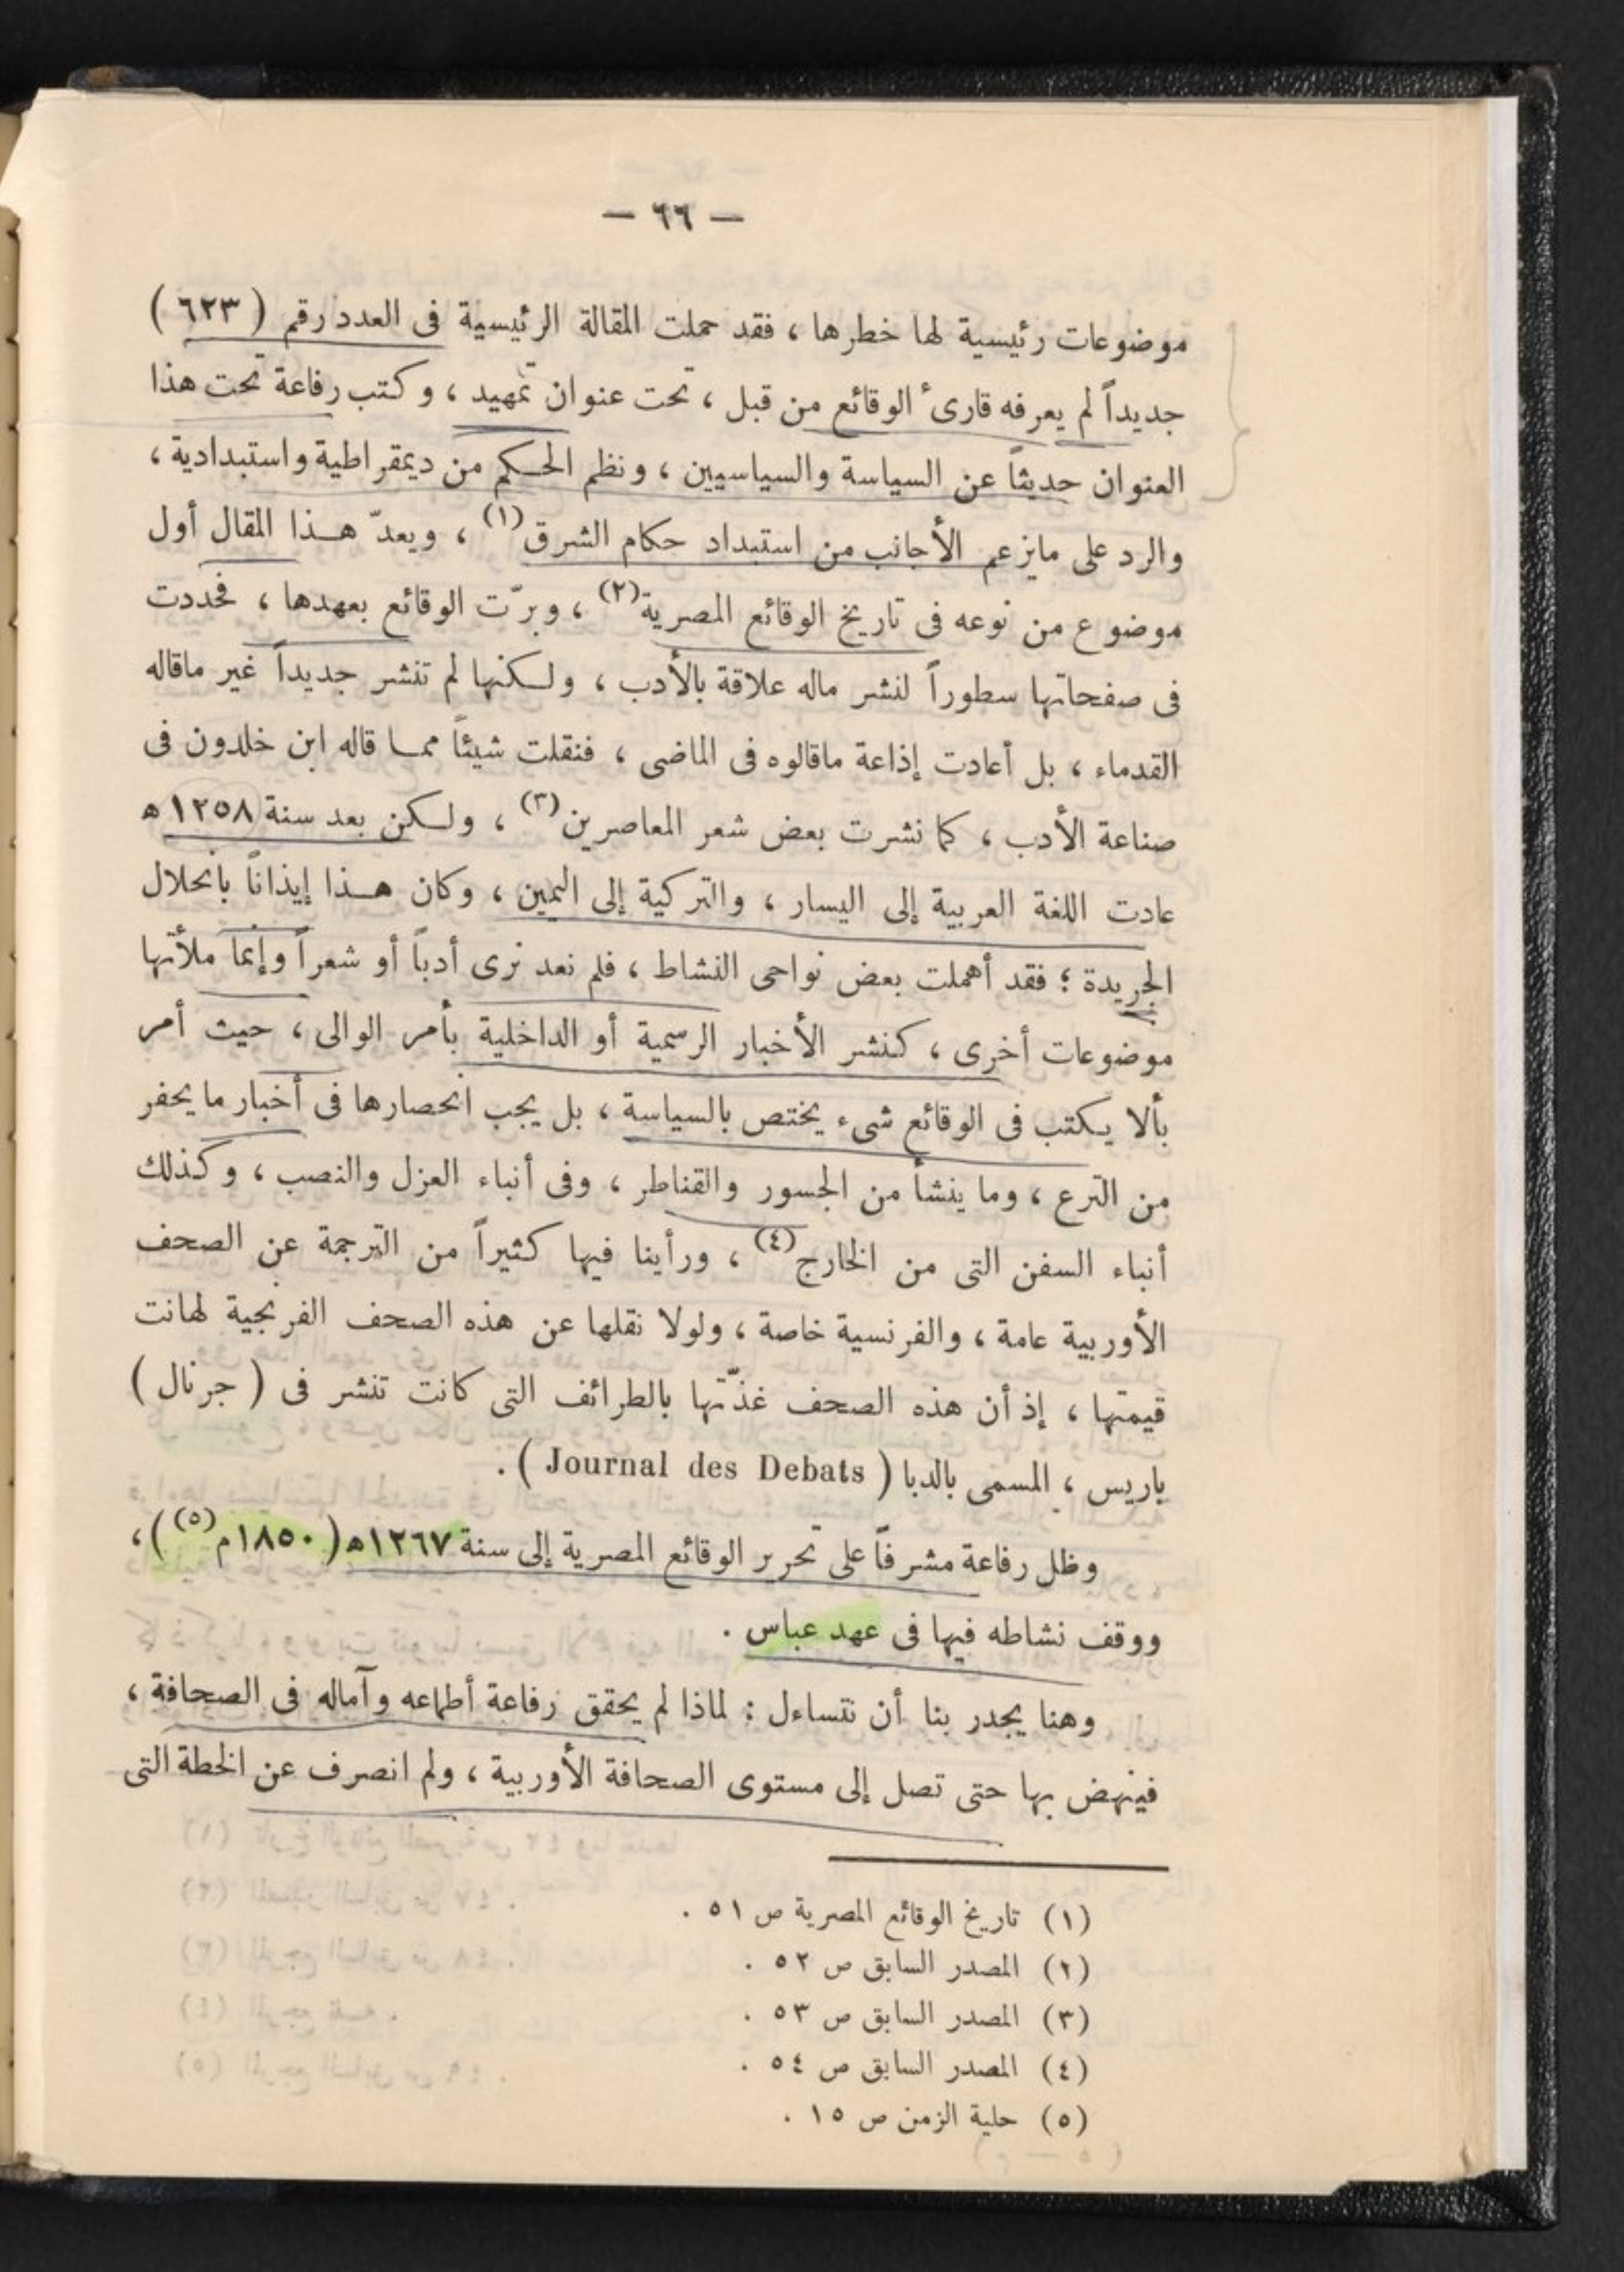 — ٦٦ —
موضوعات رئيسية لها خطرها ، فقد حملت المقالة الرئيسية فى العدد رقم ( ٦٢٣ )
جديداً لم يعرفه قارئ الوقائع من قبل ، تحت عنوان تمهيد ، وكتب رفاعة تحت هذا
العنوان حديثاً عن السياسة والسياسيين ، ونظم الحكم من ديمقراطية واستبدادية ،
والرد على مايزعم الأجانب من استبداد حكام الشرق(١) ، ويعدّ هذا المقال أول
موضوع من نوعه فى تاريخ الوقائع المصرية(٢) ، وبرّت الوقائع بعهدها ، فحددت
فى صفحاتها سطوراً لنشر ماله علاقة بالأدب ، ولكنها لم تنشر جديداً غير ماقاله
القدماء ، بل أعادت إذاعة ماقالوه فى الماضى ، فنقلت شيئاً مما قاله ابن خلدون فى
صناعة الأدب ، كما نشرت بعض شعر المعاصرين(٣) ، ولكن بعد سنة ١٢٥٨ ه
عادت اللغة العربية إلى اليسار ، والتركية إلى اليمين ، وكان هذا إيذاناً بانحلال
الجريدة ؛ فقد أهملت بعض نواحى النشاط ، فلم نعد نرى أدباً أو شعراً وإنما ملأتها
موضوعات أخرى ، كنشر الأخبار الرسمية أو الداخلية بأمر الوالى ، حيث أمر
بألا يكتب فى الوقائع شىء يختص بالسياسة ، بل يجب انحصارها فى أخبار ما يحفر
من الترع ، وما ينشأ من الجسور والقناطر ، وفى أنباء العزل والنصب ، وكذلك
أنباء السفن التى من الخارج(٤) ، ورأينا فيها كثيراً من الترجمة عن الصحف
الأوربية عامة ، والفرنسية خاصة ، ولولا نقلها عن هذه الصحف الفرنجية لهانت
قيمتها ، إذ أن هذه الصحف غذّتها بالطرائف التى كانت تنشر فى ( جرنال )
باريس ، المسمى بالدبا ( Journal des Debats ) .
وظل رفاعة مشرفاً على تحرير الوقائع المصرية إلى سنة ١٢٦٧ه ( ١٨٥٠م(٥) ) ،
ووقف نشاطه فيها فى عهد عباس .
وهنا يجدر بنا أن نتساءل : لماذا لم يحقق رفاعة أطماعه وآماله فى الصحافة ،
فينهض بها حتى تصل إلى مستوى الصحافة الأوربية ، ولم انصرف عن الخطة التى
(١) تاريخ الوقائع المصرية ص ٥١ .
(٢) المصدر السابق ص ٥٢ .
(٣) المصدر السابق ص ٥٣ .
(٤) المصدر السابق ص ٥٤ .
(٥) حلية الزمن ص ١٥ .